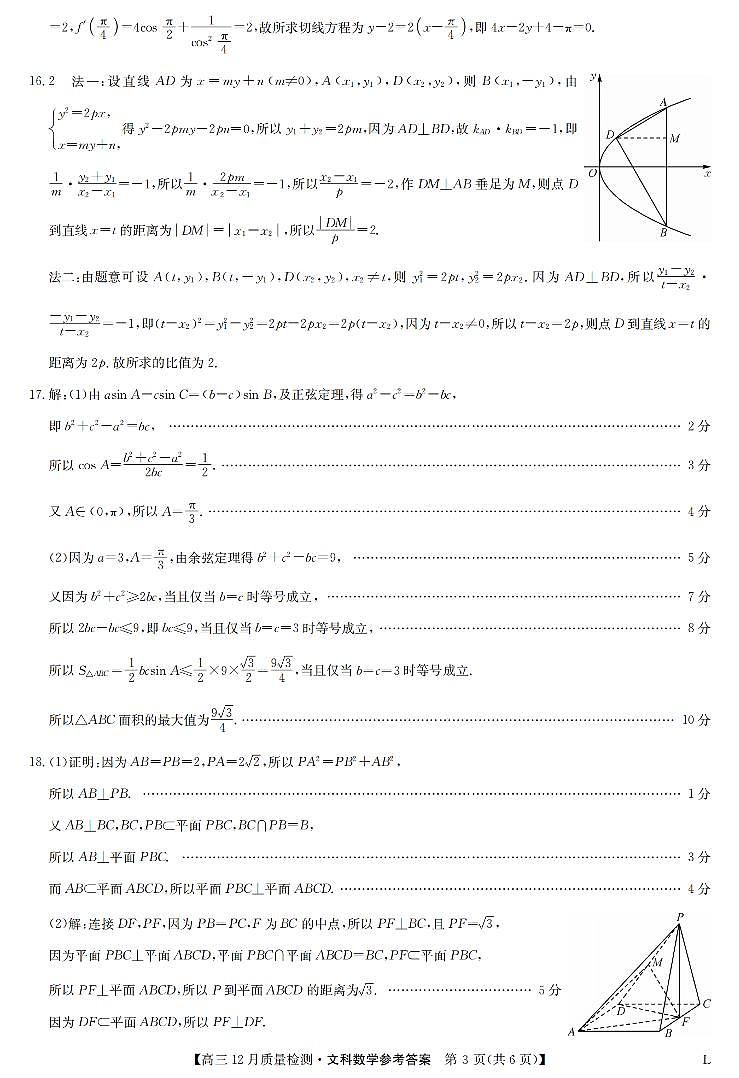 =2,f′(π/4)=4cos π/2+1/cos² π/4=2,故所求切线方程为 y−2=2(x−π/4),即 4x−2y+4−π=0.
16.2 法一:设直线 AD 为 x=my+n(m≠0),A(x₁,y₁),D(x₂,y₂),则 B(x₁,−y₁),由
{y²=2px, x=my+n, 得 y²−2pmy−2pn=0,所以 y₁+y₂=2pm,因为 AD⊥BD,故 k_AD·k_BD=−1,即
1/m·(y₂+y₁)/(x₂−x₁)=−1,所以 1/m·2pm/(x₂−x₁)=−1,所以 (x₂−x₁)/p=−2,作 DM⊥AB 垂足为 M,则点 D
到直线 x=t 的距离为|DM|=|x₁−x₂|,所以 |DM|/p=2.
y
A
D
M
O
x
B
法二:由题意可设 A(t,y₁),B(t,−y₁),D(x₂,y₂),x₂≠t,则 y₁²=2pt,y₂²=2px₂.因为 AD⊥BD,所以 (y₁−y₂)/(t−x₂)·
(−y₁−y₂)/(t−x₂)=−1,即(t−x₂)²=y₁²−y₂²=2pt−2px₂=2p(t−x₂),因为 t−x₂≠0,所以 t−x₂=2p,则点 D 到直线 x=t 的
距离为 2p.故所求的比值为 2.
17.解:(1)由 asin A−csin C=(b−c)sin B,及正弦定理,得 a²−c²=b²−bc,
即 b²+c²−a²=bc, …… 2 分
所以 cos A=(b²+c²−a²)/2bc=1/2. …… 3 分
又 A∈(0,π),所以 A=π/3. …… 4 分
(2)因为 a=3,A=π/3,由余弦定理得 b²+c²−bc=9, …… 5 分
又因为 b²+c²≥2bc,当且仅当 b=c 时等号成立, …… 7 分
所以 2bc−bc≤9,即 bc≤9,当且仅当 b=c=3 时等号成立, …… 8 分
所以 S△ABC=1/2 bcsin A≤1/2×9×√3/2=9√3/4,当且仅当 b=c=3 时等号成立.
所以△ABC 面积的最大值为 9√3/4. …… 10 分
18.(1)证明:因为 AB=PB=2,PA=2√2,所以 PA²=PB²+AB²,
所以 AB⊥PB. …… 1 分
又 AB⊥BC,BC,PB⊂平面 PBC,BC∩PB=B,
所以 AB⊥平面 PBC. …… 3 分
而 AB⊂平面 ABCD,所以平面 PBC⊥平面 ABCD. …… 4 分
(2)解:连接 DF,PF,因为 PB=PC,F 为 BC 的中点,所以 PF⊥BC,且 PF=√3,
因为平面 PBC⊥平面 ABCD,平面 PBC∩平面 ABCD=BC,PF⊂平面 PBC,
所以 PF⊥平面 ABCD,所以 P 到平面 ABCD 的距离为√3. …… 5 分
因为 DF⊂平面 ABCD,所以 PF⊥DF.
P
M
D
C
F
A
B
【高三 12 月质量检测·文科数学参考答案 第 3 页(共 6 页)】 L